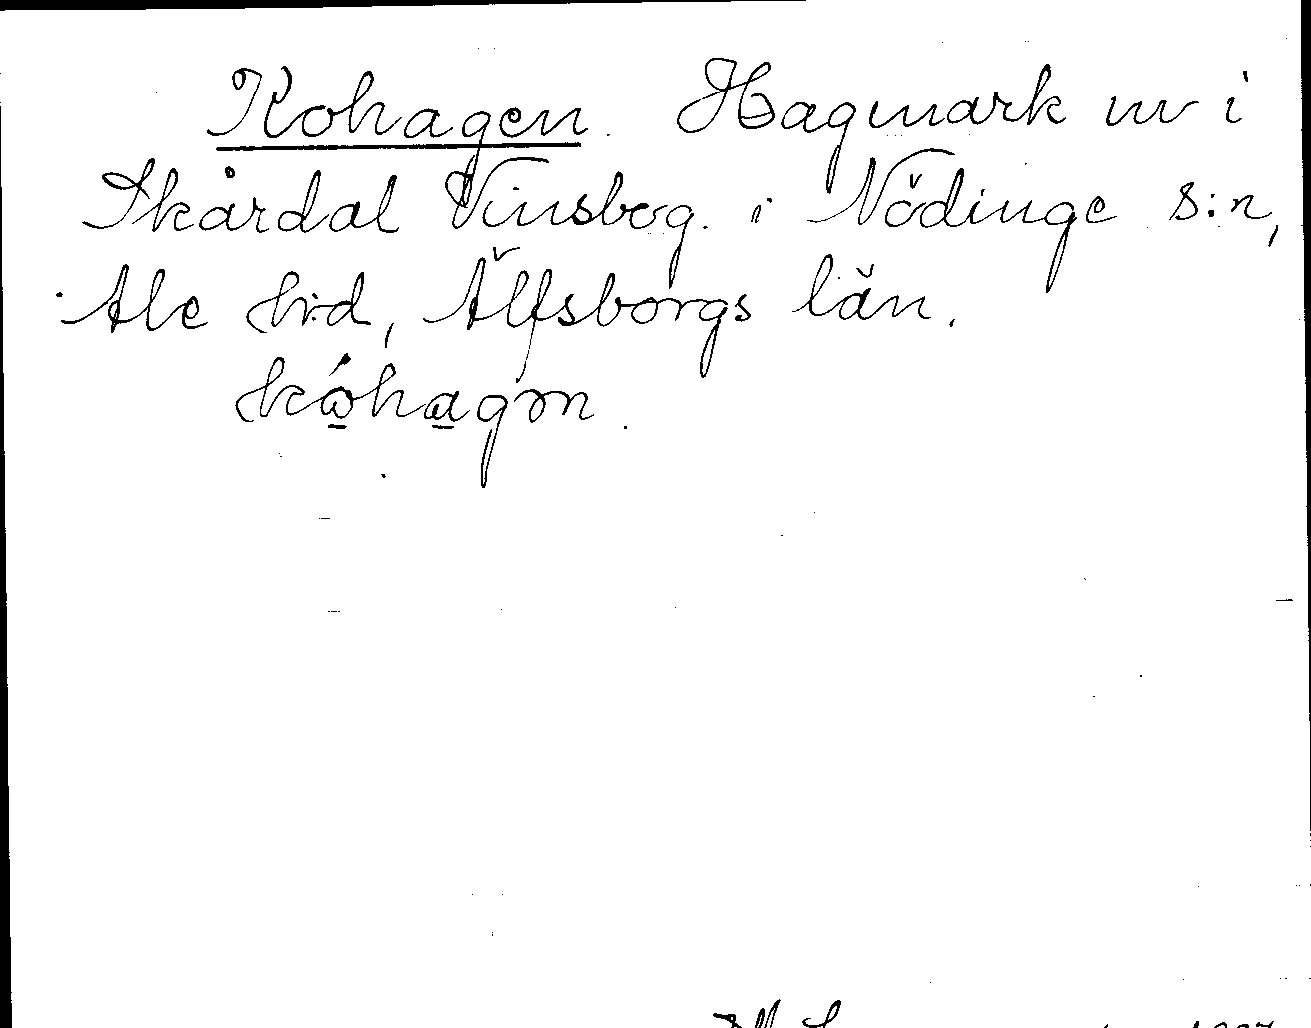 Kohagen. Hagmark nv i
Skårdal Vinsbog. i Nödinge s:n,
Ale h:d, Älfsborgs län.
kώ̲hα̲gən.